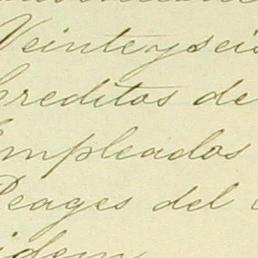 Veinteyseis
Creditos de
Empleados
Peages del
idem